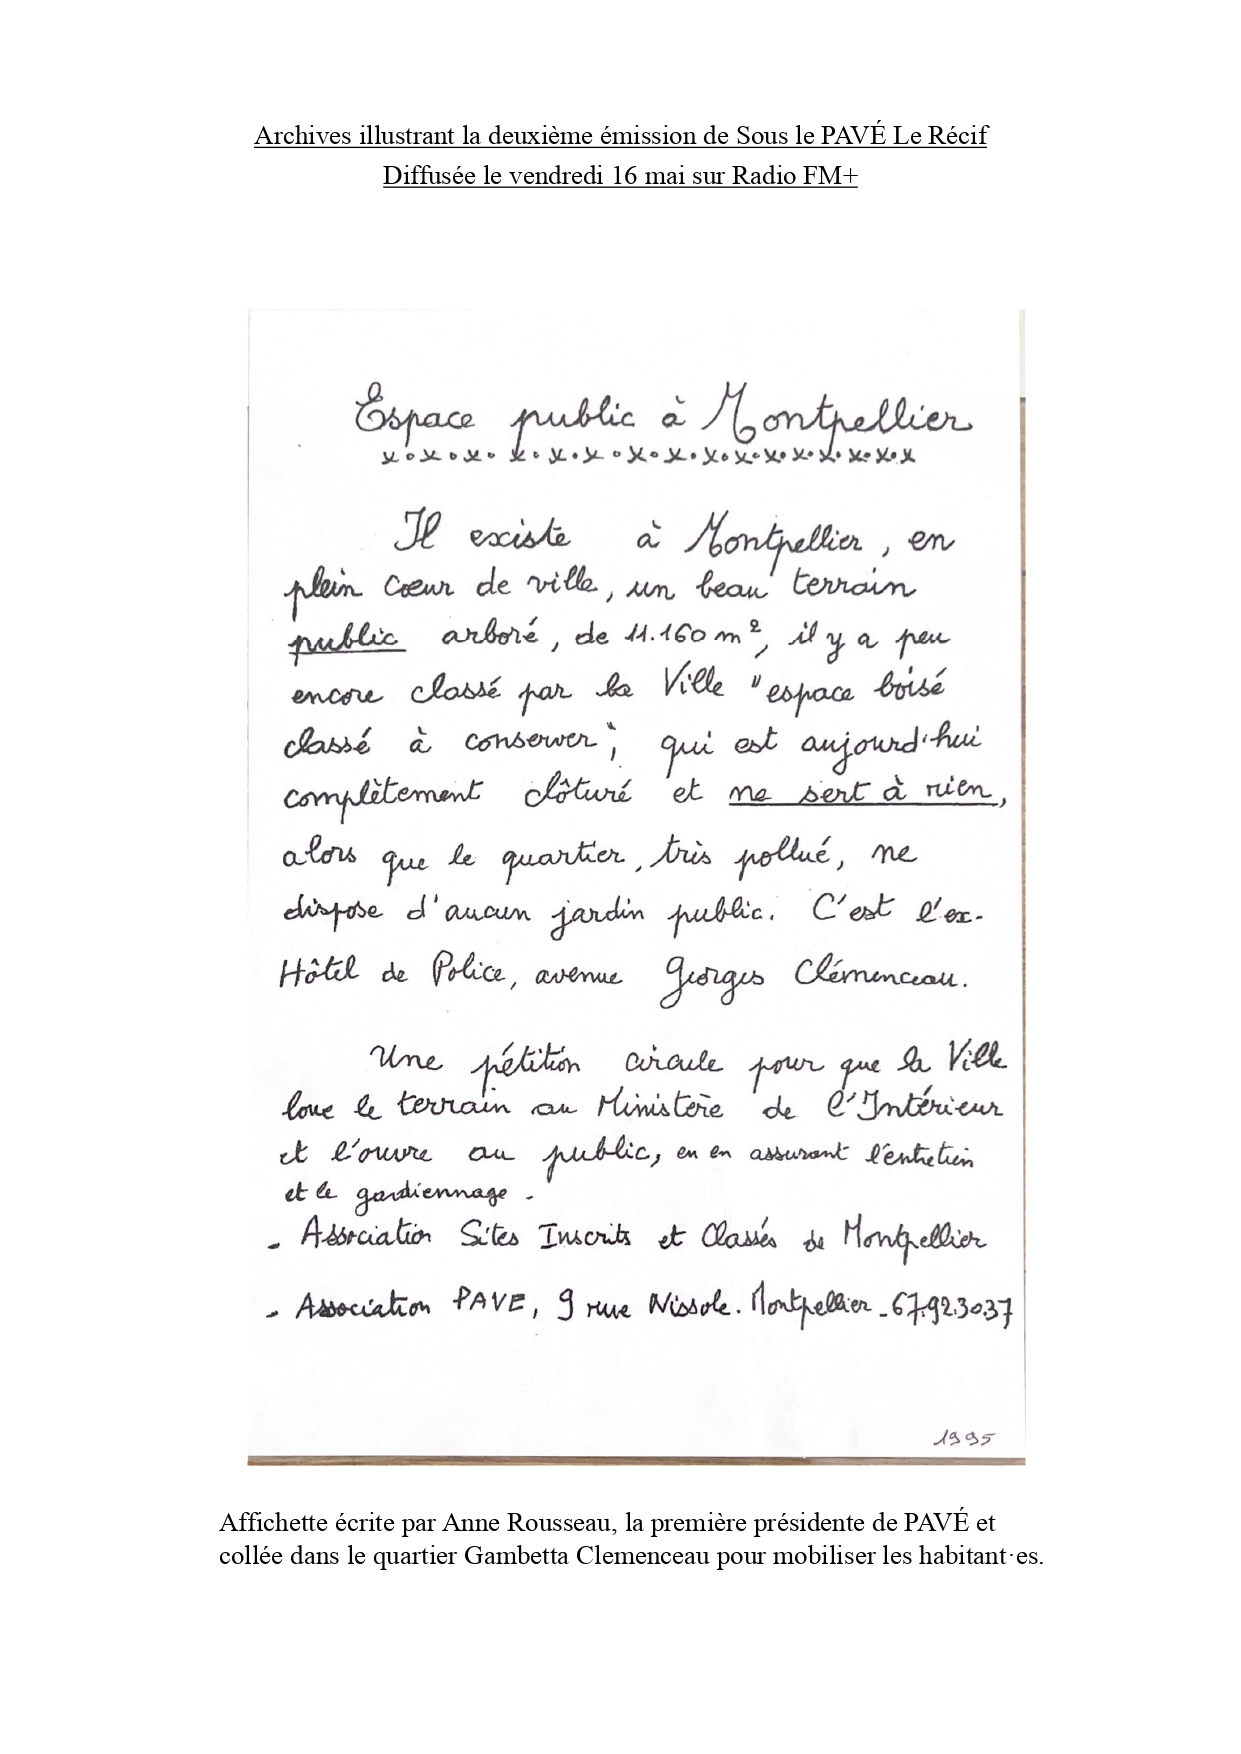 Archives illustrant la deuxième émission de Sous le PAVÉ Le Récif
Diffusée le vendredi 16 mai sur Radio FM+
Espace public à Montpellier
Il existe à Montpellier, en
plein cœur de ville, un beau terrain
public arboré, de 11.160 m², il y a peu
encore classé par la Ville "espace boisé
classé à conserver", qui est aujourd'hui
complètement clôturé et ne sert à rien,
alors que le quartier, très pollué, ne
dispose d'aucun jardin public. C'est l'ex-
Hôtel de Police, avenue Georges Clémenceau.
Une pétition circule pour que la Ville
loue le terrain au Ministère de l'Intérieur
et l'ouvre au public, en en assurant l'entretien
et le gardiennage.
- Association Sites Inscrits et Classés de Montpellier
- Association PAVE, 9 rue Nissole. Montpellier - 67.92.30.37
1995
Affichette écrite par Anne Rousseau, la première présidente de PAVÉ et
collée dans le quartier Gambetta Clemenceau pour mobiliser les habitant·es.